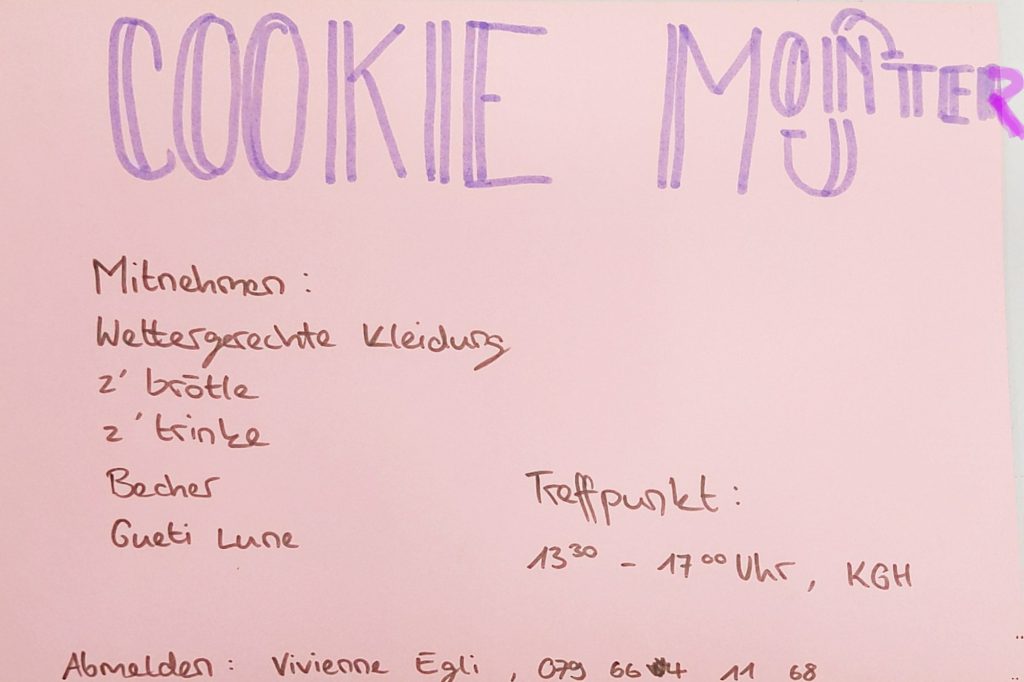 COOKIE MONSTER
Mitnehmen :
Wettergerechte Kleidung
z' brötle
z' trinke
Becher
Gueti Lune
Treffpunkt :
13³⁰ - 17⁰⁰ Uhr, KGH
Abmelden : Vivienne Egli, 079 664 11 68